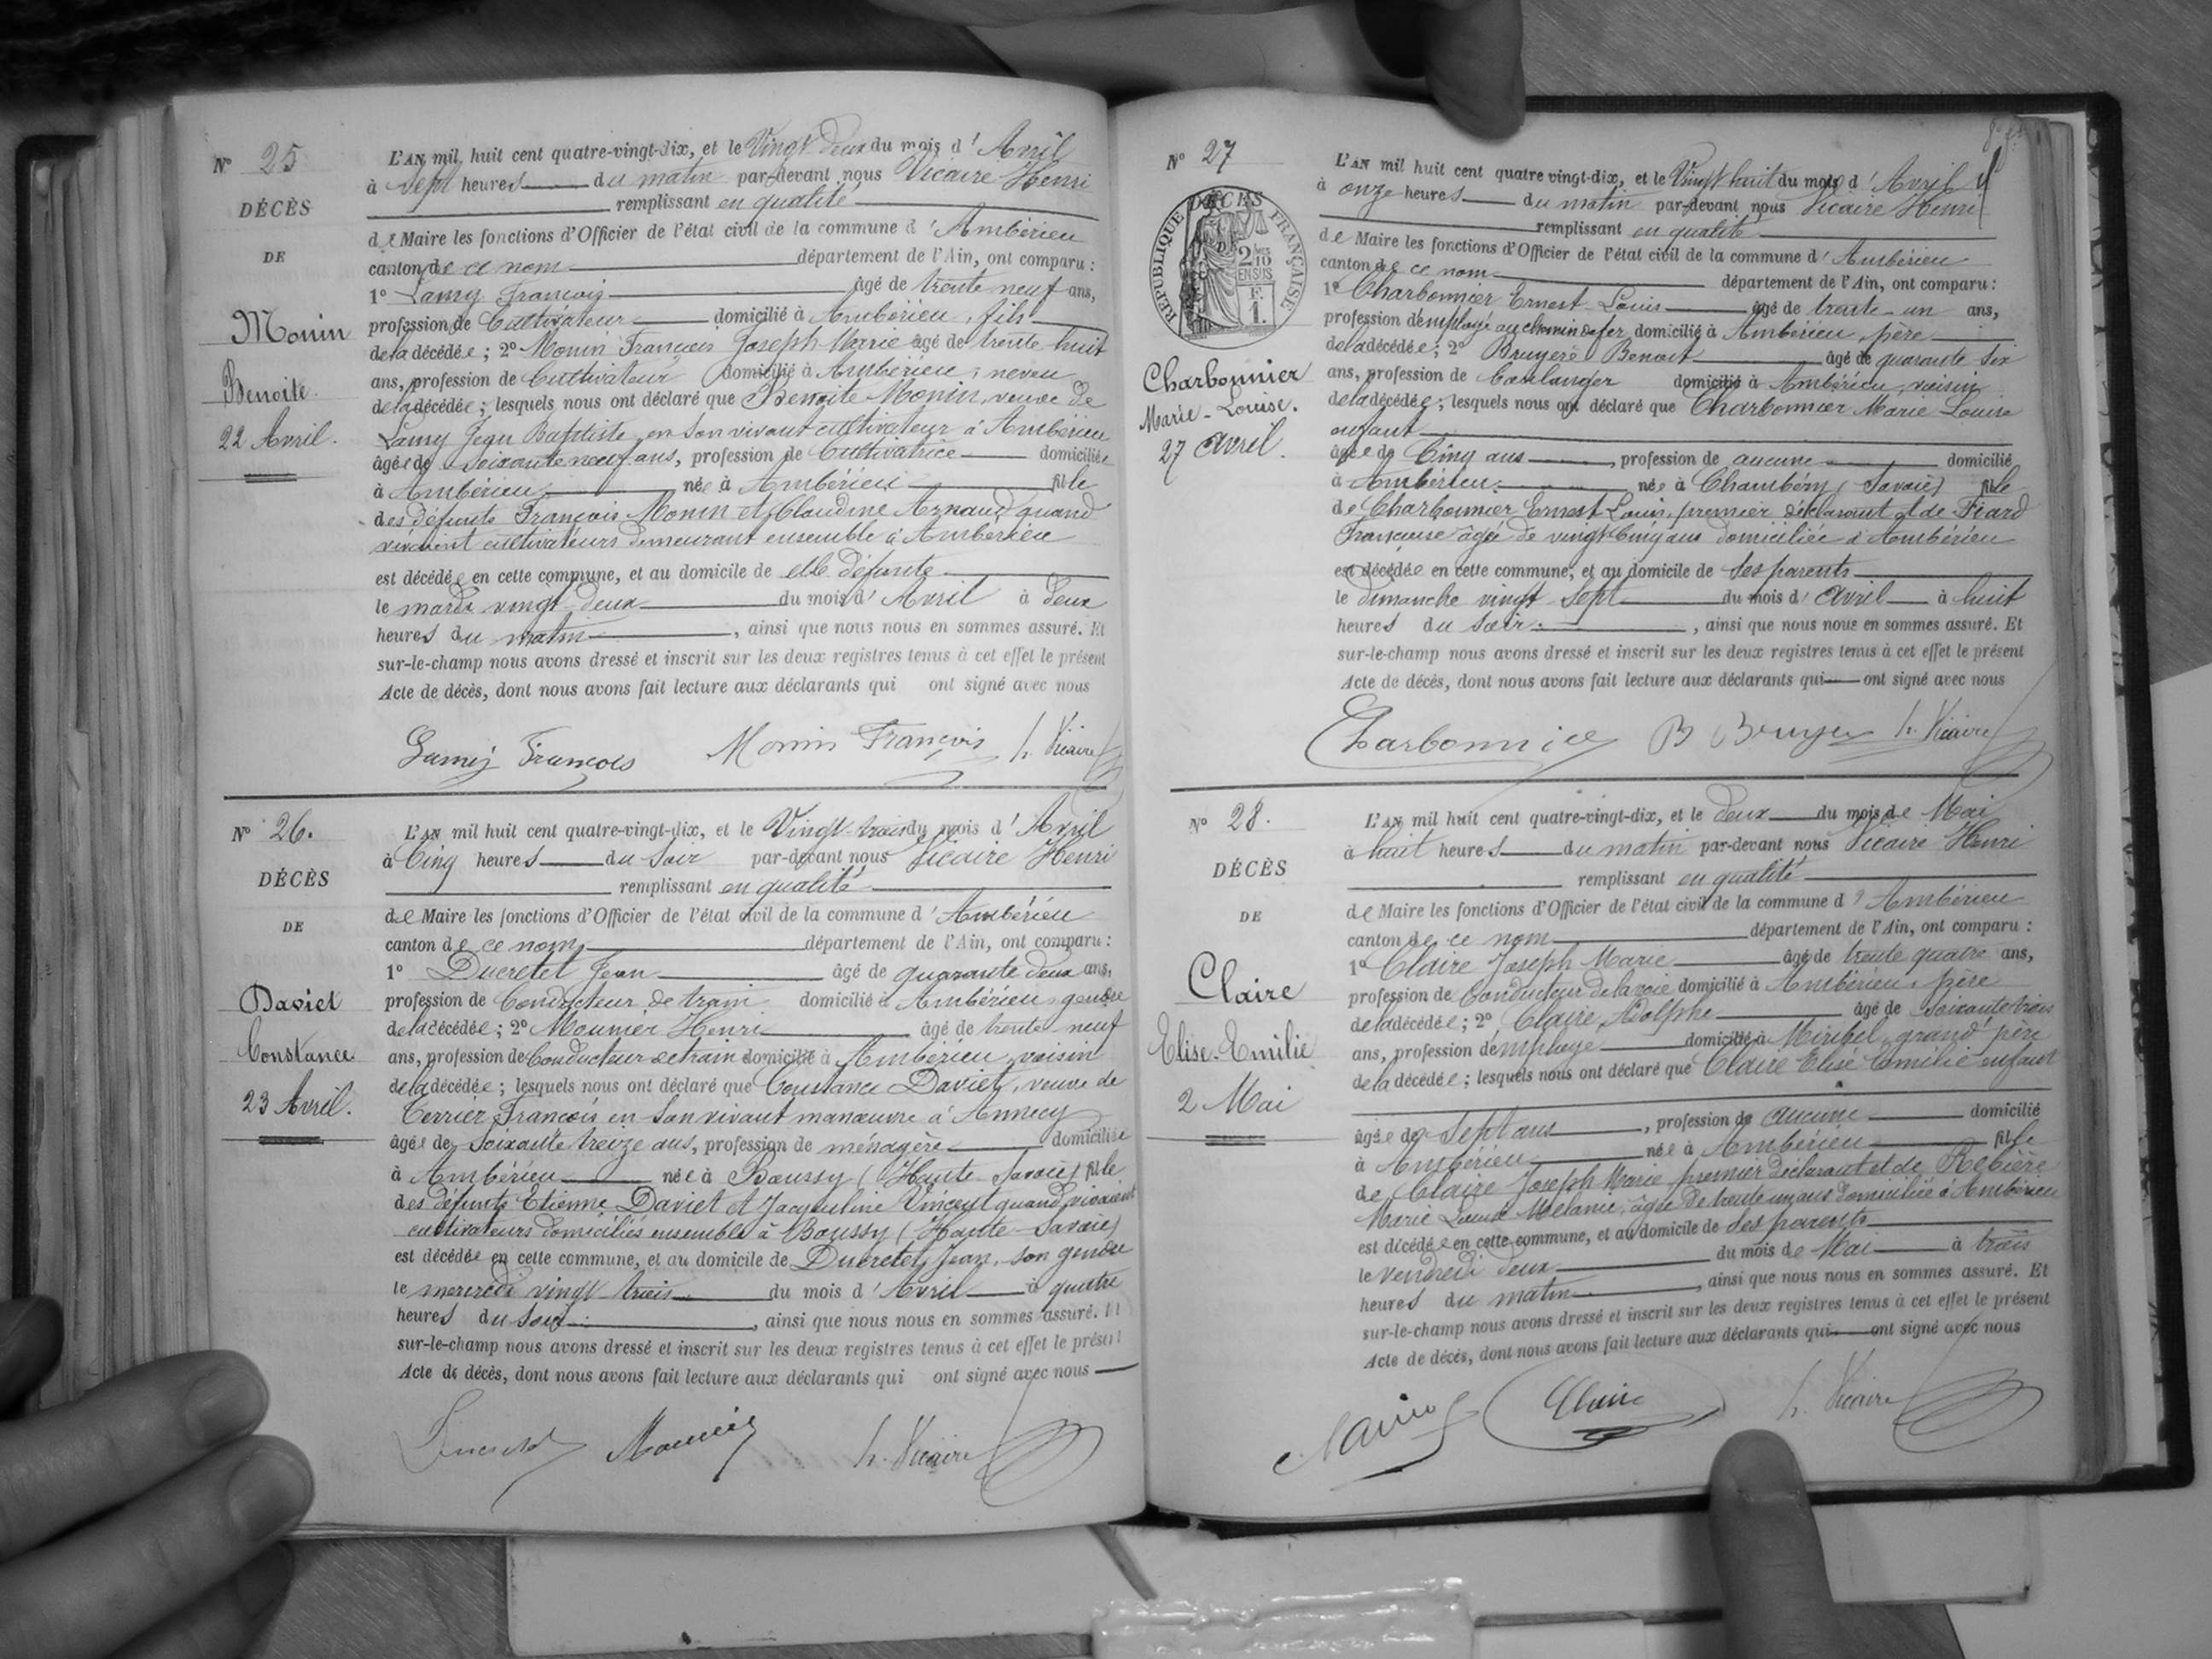 N° 25
DÉCÈS
DE
Monin
Benoite.
22 Avril.
L'AN mil huit cent quatre-vingt-dix, et le Vingt deux du mois d' Avril
à Sept heures du matin par-devant nous Vicaire Henri
remplissant en qualité
de Maire les fonctions d'Officier de l'état civil de la commune d' Ambérieu
canton de ce nom département de l'Ain, ont comparu :
1° Lamy François âgé de trente neuf ans,
profession de Cultivateur domicilié à Ambérieu, fils
de la décédée ; 2° Monin François Joseph Marie âgé de trente huit
ans, profession de Cultivateur domicilié à Ambérieu, neveu
de la décédée ; lesquels nous ont déclaré que Benoite Monin, veuve de
Lamy Jean Baptiste, en son vivant cultivateur à Ambérieu
âgée de soixante neuf ans, profession de Cultivatrice domiciliée
à Ambérieu née à Ambérieu fille
des défunts François Monin et Claudine Arnaud quand
vivaient cultivateurs demeurant ensemble à Ambérieu
est décédée en cette commune, et au domicile de elle défunte
le mardi vingt deux du mois d' Avril à deux
heures du matin, ainsi que nous nous en sommes assuré. Et
sur-le-champ nous avons dressé et inscrit sur les deux registres tenus à cet effet le présent
Acte de décès, dont nous avons fait lecture aux déclarants qui ont signé avec nous
Lamy François Monin François h. Vicaire
N° 26.
DÉCÈS
DE
Daviet
Constance.
23 Avril.
L'AN mil huit cent quatre-vingt-dix, et le Vingt-trois du mois d' Avril
à Cinq heures du Soir par-devant nous Vicaire Henri
remplissant en qualité
de Maire les fonctions d'Officier de l'état civil de la commune d' Ambérieu
canton de ce nom département de l'Ain, ont comparu :
1° Ducretet Jean âgé de quarante deux ans,
profession de Conducteur de train domicilié à Ambérieu, gendre
de la décédée ; 2° Mounier Henri âgé de trente neuf
ans, profession de Conducteur de train domicilié à Ambérieu, voisin
de la décédée ; lesquels nous ont déclaré que Constance Daviet, veuve de
Terrier François en son vivant manœuvre à Annecy
âgée de Soixante treize ans, profession de ménagère domiciliée
à Ambérieu née à Boussy (Haute Savoie) fille
des défunts Etienne Daviet et Jacqueline Vincent quand vivaient
cultivateurs domiciliés ensemble à Boussy (Haute-Savoie)
est décédée en cette commune, et au domicile de Ducretet, Jean, son gendre
le mercredi vingt trois du mois d' Avril à quatre
heures du Soir, ainsi que nous nous en sommes assuré. Et
sur-le-champ nous avons dressé et inscrit sur les deux registres tenus à cet effet le présent
Acte de décès, dont nous avons fait lecture aux déclarants qui ont signé avec nous
h. Vicaire
N° 27
RÉPUBLIQUE FRANÇAISE
DÉCÈS
2/10 EN SUS
F. 1.
Charbonnier
Marie-Louise.
27 Avril.
L'AN mil huit cent quatre vingt-dix, et le Vingt huit du mois d' Avril
à onze heures du matin par-devant nous Vicaire Henri
remplissant en qualité
de Maire les fonctions d'Officier de l'état civil de la commune d' Ambérieu
canton de ce nom département de l'Ain, ont comparu :
1° Charbonnier Ernest Louis âgé de trente-un ans,
profession d'employé au chemin de fer, domicilié à Ambérieu, père
de la décédée ; 2° Bruyère Benoit âgé de quarante six
ans, profession de boulanger domicilié à Ambérieu, voisin
de la décédée ; lesquels nous ont déclaré que Charbonnier Marie Louise
enfant
âgée de Cinq ans, profession de aucune domicilié
à Ambérieu née à Chambéry (Savoie) fille
de Charbonnier Ernest Louis, premier déclarant et de Fiard
Françoise âgée de vingt Cinq ans domiciliée à Ambérieu
est décédée en cette commune, et au domicile de ses parents
le dimanche vingt sept du mois d' Avril à huit
heures du soir, ainsi que nous nous en sommes assuré. Et
sur-le-champ nous avons dressé et inscrit sur les deux registres tenus à cet effet le présent
Acte de décès, dont nous avons fait lecture aux déclarants qui ont signé avec nous
Charbonnier B Bruyer h. Vicaire
N° 28.
DÉCÈS
DE
Claire
Elise-Emilie
2 Mai
L'AN mil huit cent quatre-vingt-dix, et le deux du mois de Mai
à huit heures du matin par-devant nous Vicaire Henri
remplissant en qualité
de Maire les fonctions d'Officier de l'état civil de la commune d' Ambérieu
canton de ce nom département de l'Ain, ont comparu :
1° Claire Joseph Marie âgé de trente quatre ans,
profession de Conducteur de la voie domicilié à Ambérieu, père
de la décédée ; 2° Claire Adolphe âgé de soixante trois
ans, profession d'employé domicilié à Miribel, grand père
de la décédée ; lesquels nous ont déclaré que Claire Elise Emilie enfant
âgée de Sept ans, profession de aucune domicilié
à Ambérieu née à Ambérieu fille
de Claire Joseph Marie premier déclarant et de Rebière
Marie Louise Mélanie, âgée de trente un ans domiciliée à Ambérieu
est décédée en cette commune, et au domicile de ses parents
le vendredi deux du mois de Mai à trois
heures du matin, ainsi que nous nous en sommes assuré. Et
sur-le-champ nous avons dressé et inscrit sur les deux registres tenus à cet effet le présent
Acte de décès, dont nous avons fait lecture aux déclarants qui ont signé avec nous
Claire h. Vicaire